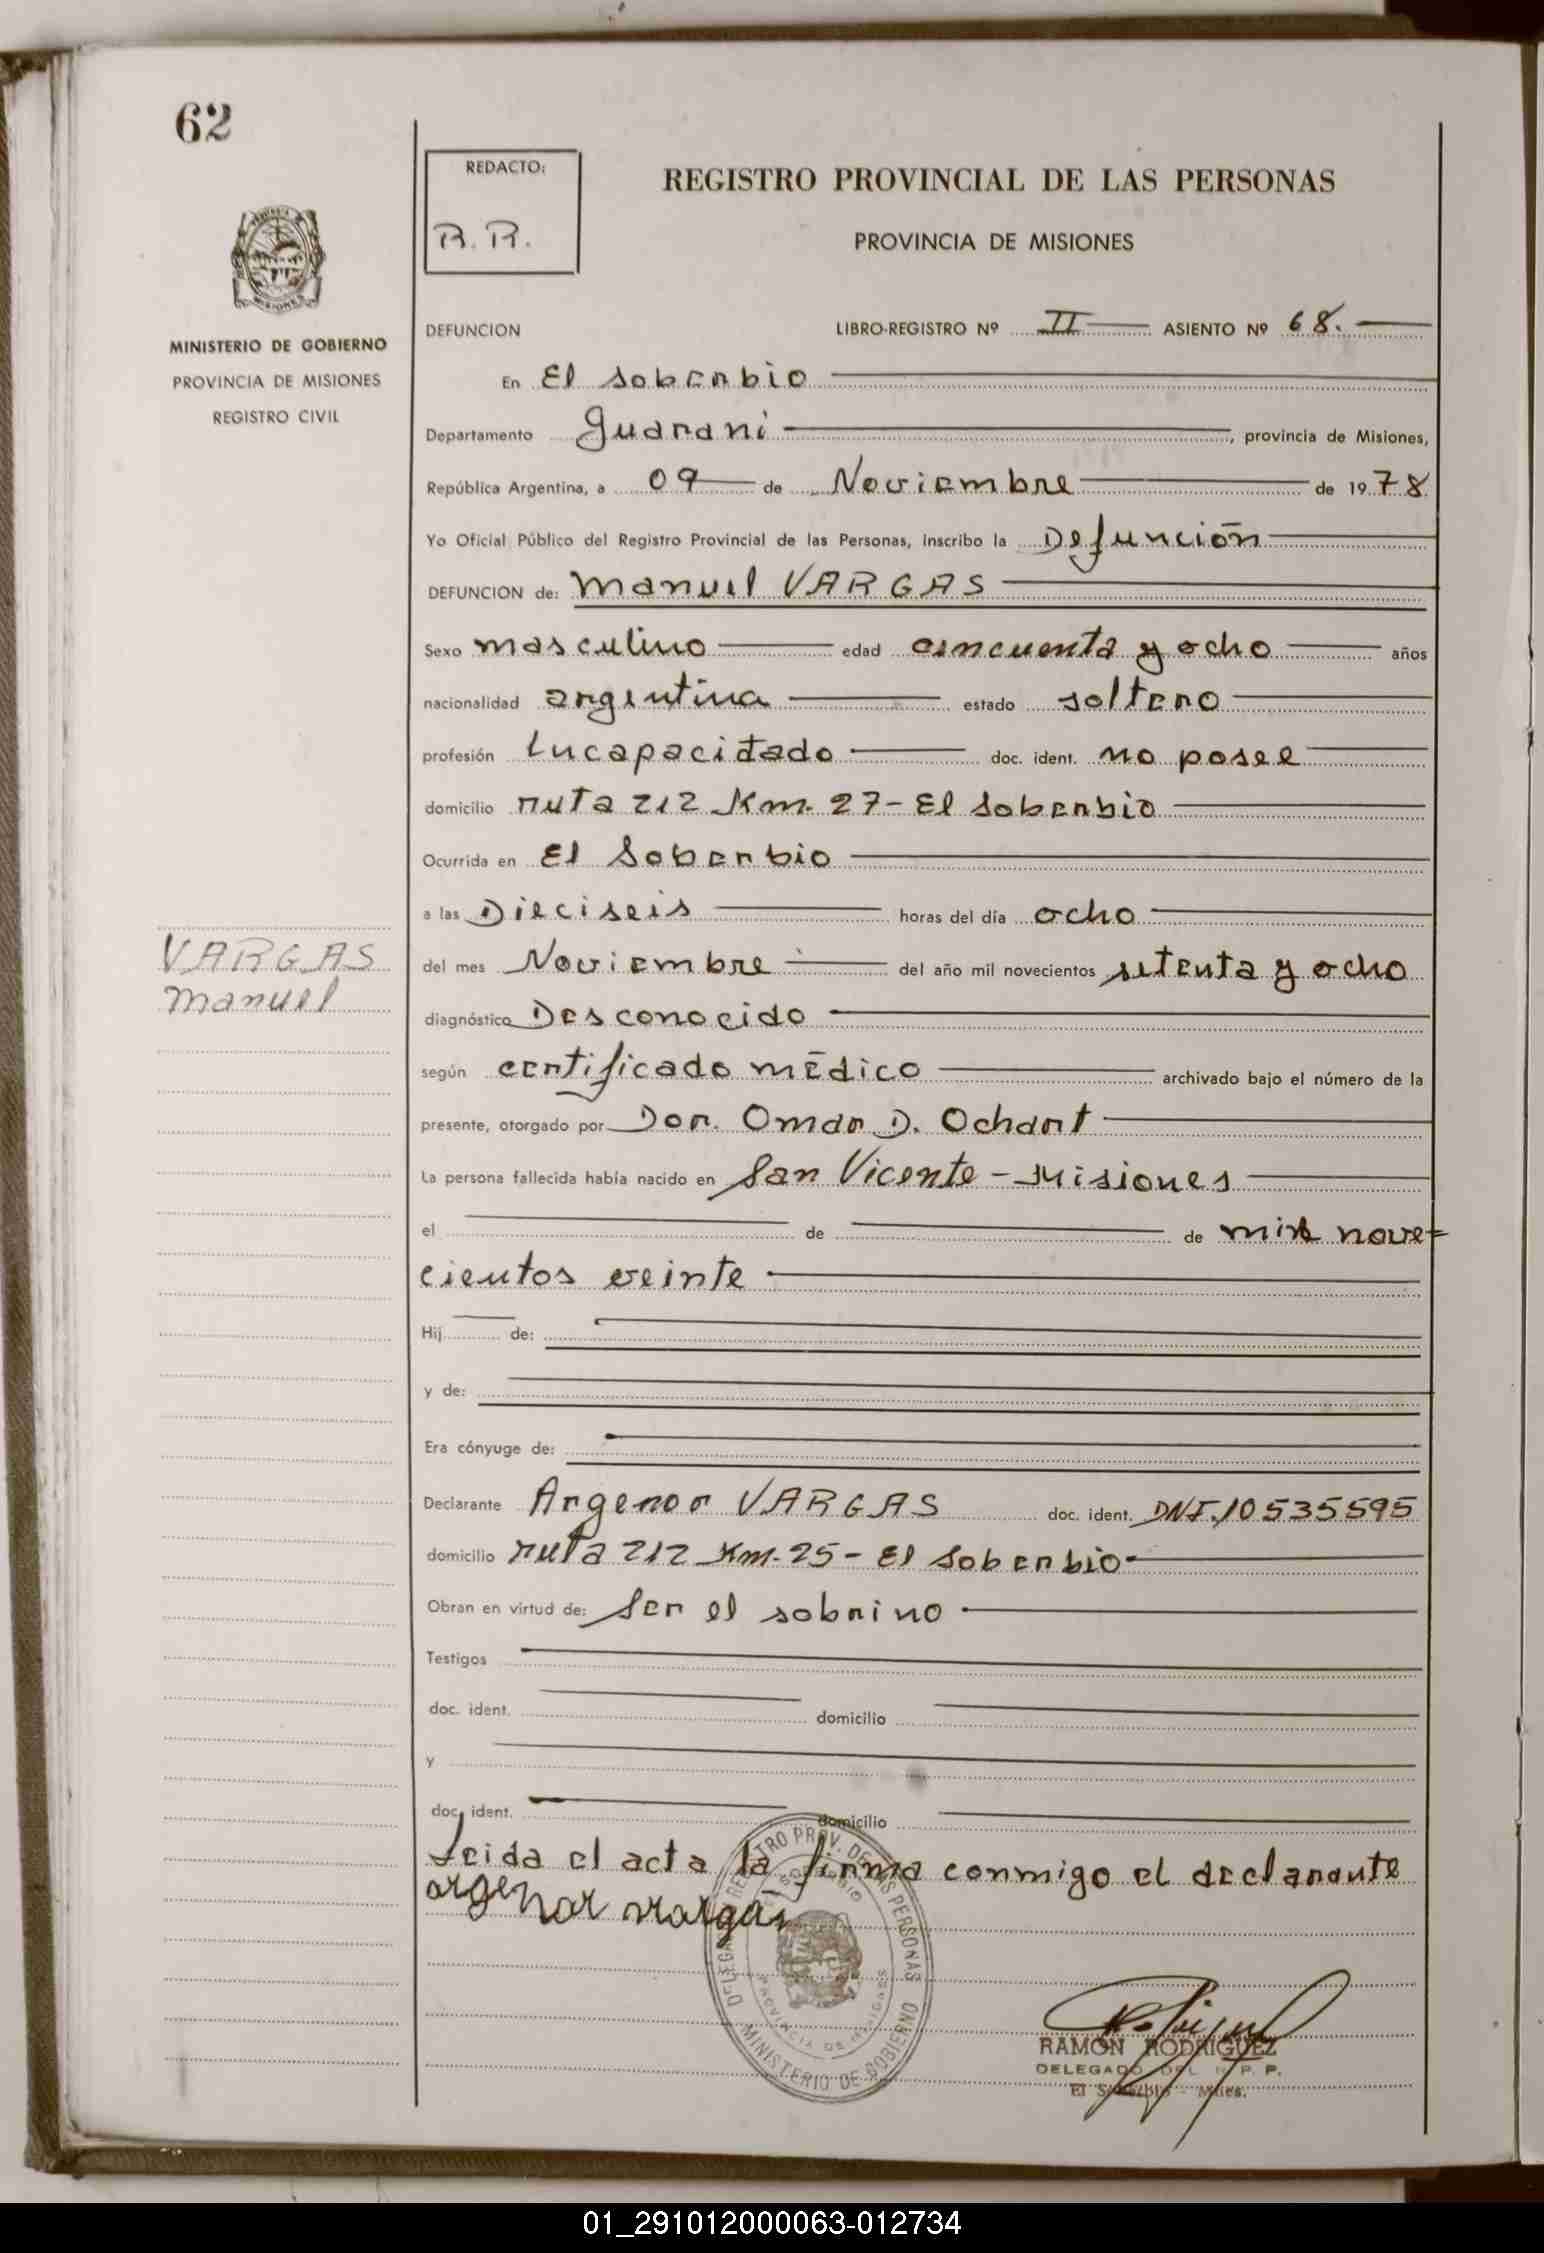 62
REDACTO:
R. R.
REGISTRO PROVINCIAL DE LAS PERSONAS
PROVINCIA DE MISIONES
MISIONES
MINISTERIO DE GOBIERNO
PROVINCIA DE MISIONES
REGISTRO CIVIL
DEFUNCION LIBRO-REGISTRO Nº II ASIENTO Nº 68.
En El Soberbio
Departamento Guarani, provincia de Misiones,
República Argentina, a 09 de Noviembre de 1978
Yo Oficial Público del Registro Provincial de las Personas, inscribo la Defunción
DEFUNCION de: Manuel VARGAS
Sexo masculino edad cincuenta y ocho años
nacionalidad argentina estado soltero
profesión Incapacitado doc. ident. no posee
domicilio ruta 212 Km. 27- El Soberbio
Ocurrida en El Soberbio
a las Dieciseis horas del día ocho
del mes Noviembre del año mil novecientos setenta y ocho
VARGAS
Manuel
diagnóstico Desconocido
según certificado médico archivado bajo el número de la
presente, otorgado por Dor. Omar D. Ochart
La persona fallecida había nacido en San Vicente - Misiones
el de de mil nove-
cientos veinte
Hij de:
y de:
Era cónyuge de:
Declarante Argenor VARGAS doc. ident. DNI. 10535595
domicilio ruta 212 Km. 25- El Soberbio
Obran en virtud de: Ser el sobrino
Testigos
doc. ident. domicilio
y
doc. ident. domicilio
Leida el acta la firma conmigo el declarante
argenor vargas
DELEGA REGISTRO PROV. DE LAS PERSONAS
EL SOBERBIO
PROVINCIA DE MISIONES
MINISTERIO DE GOBIERNO
RAMON RODRIGUEZ
DELEGADO DEL R. P. P.
El Soberbio - Mnes.
01_291012000063-012734